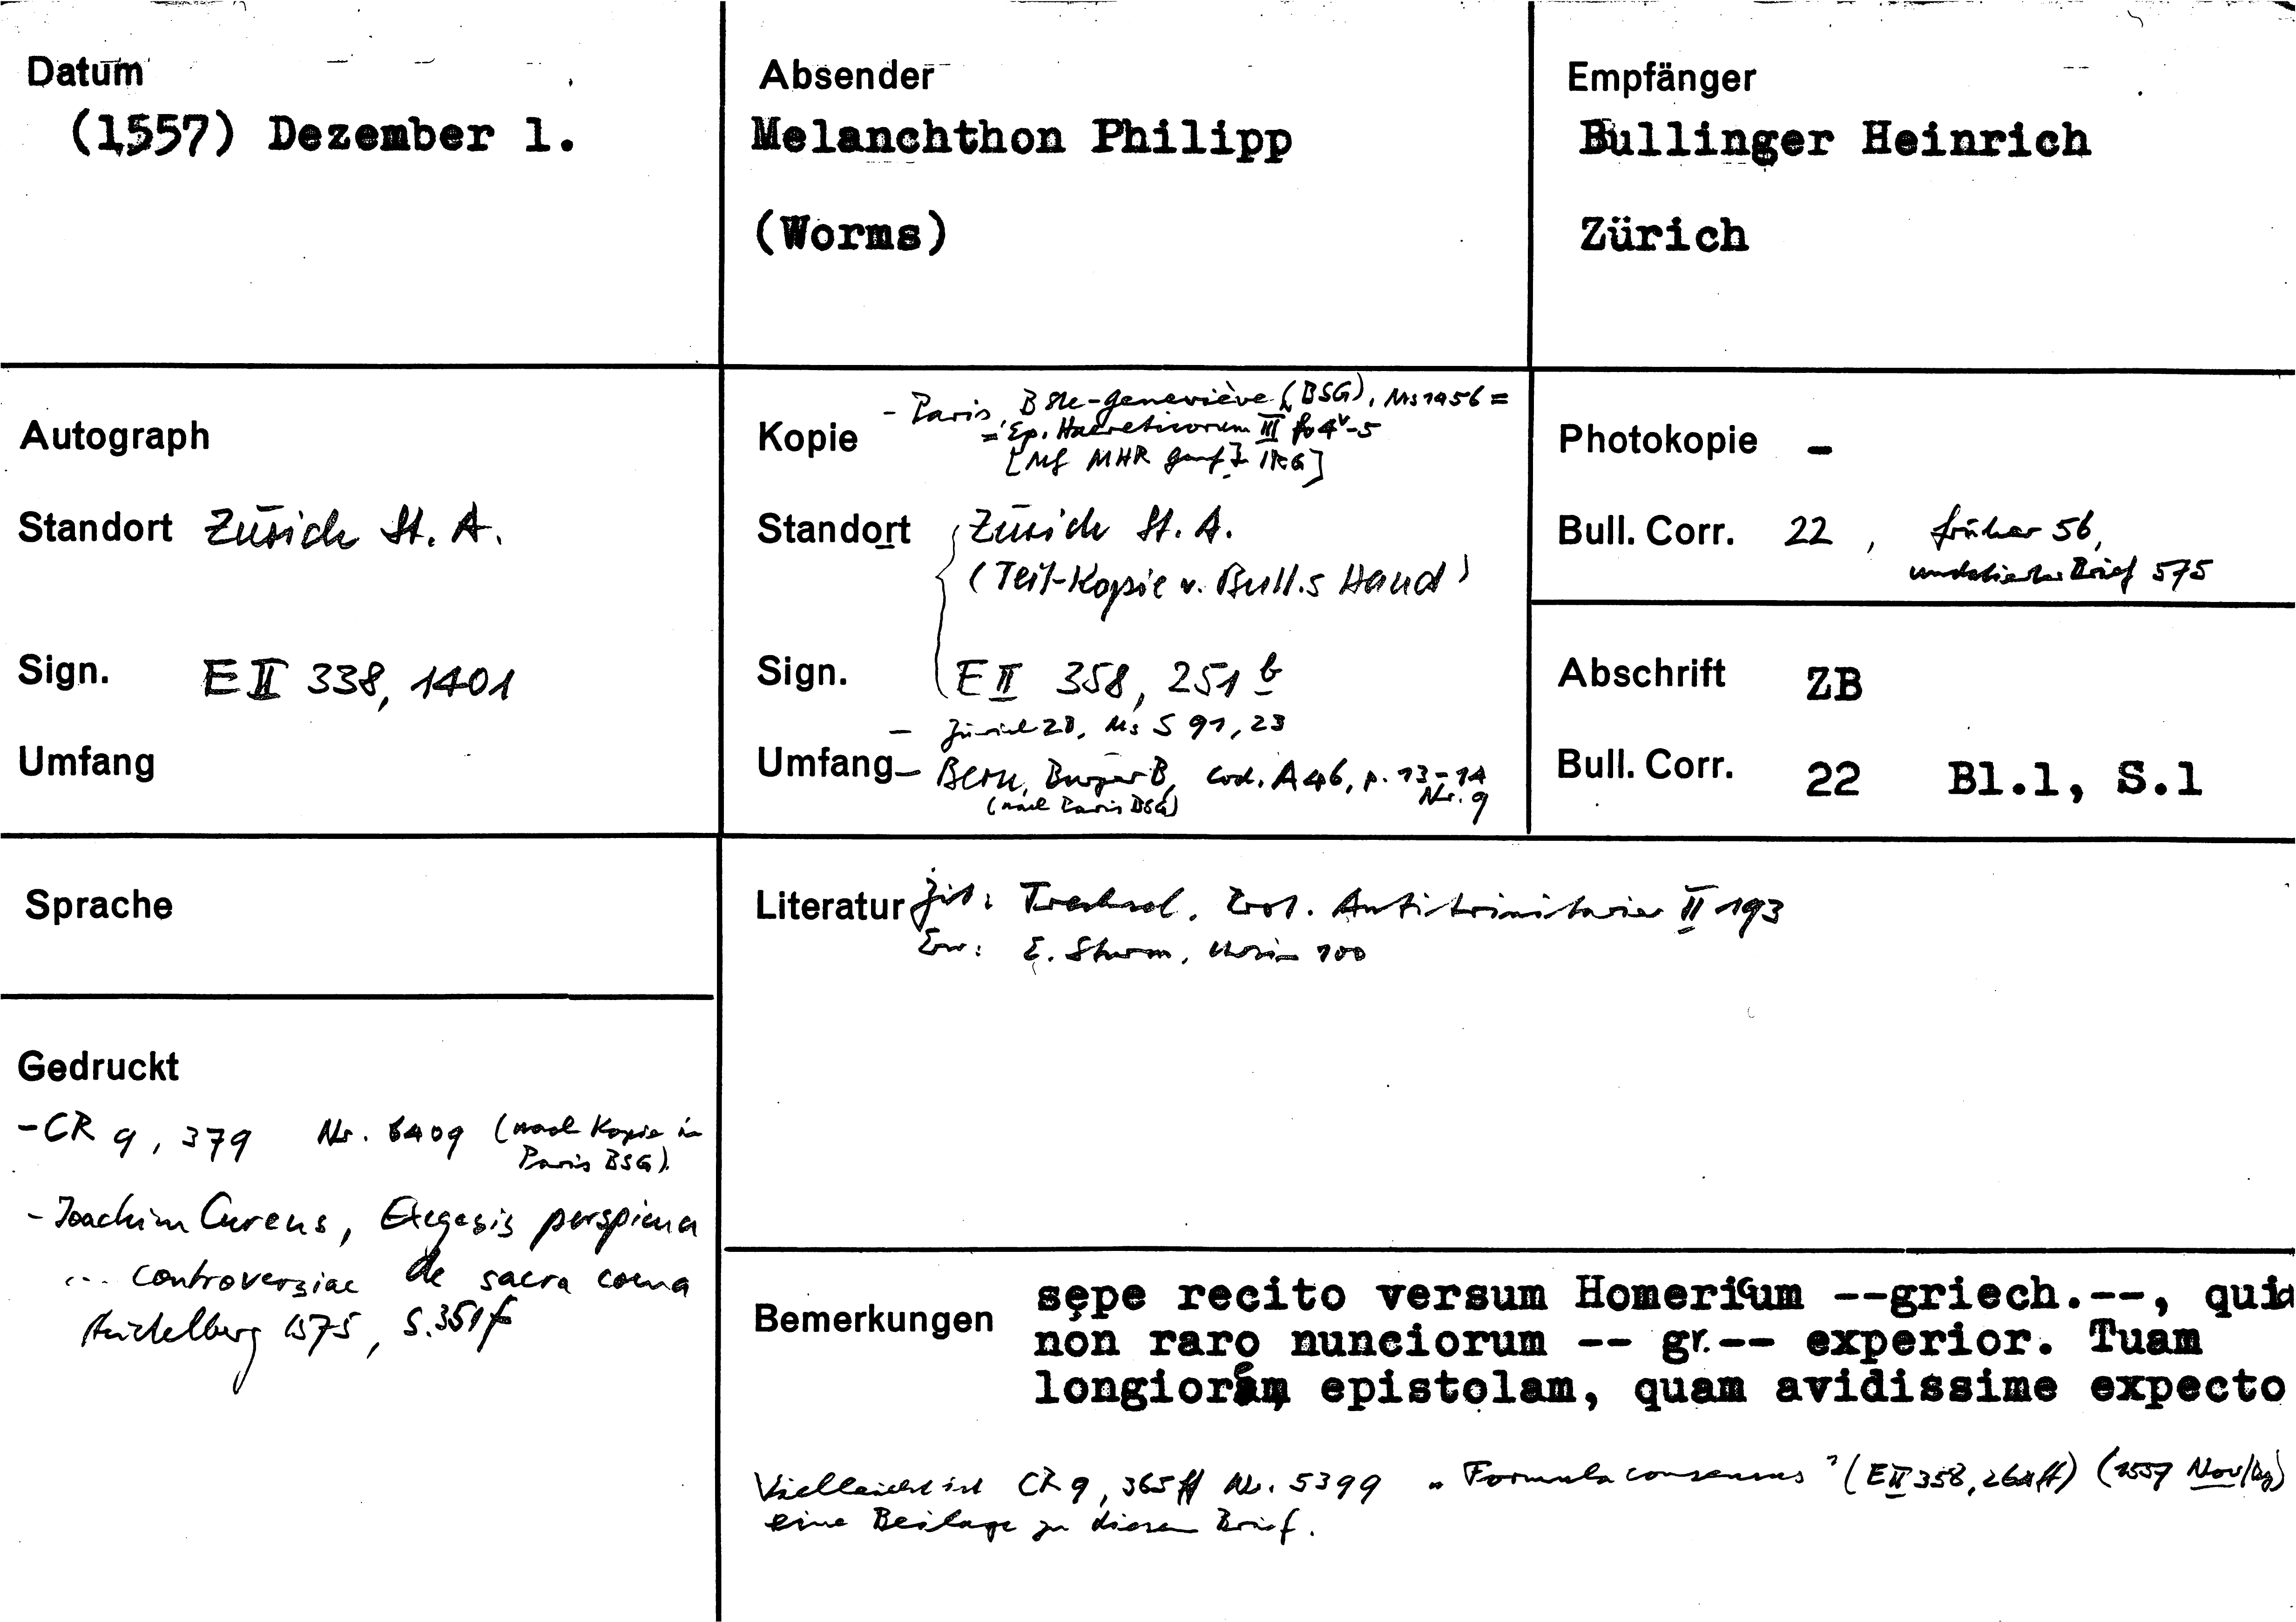 Datum
(1557) Dezember 1.
Absender
Melanchthon Philipp
(Worms)
Empfänger
Bullinger Heinrich
Zürich
Autograph
Standort Zürich St. A.
Sign. E II 338, 1401
Umfang
Kopie - Paris, B Ste-Geneviève (BSG), Ms 1456 =
= Ep. Haereticorum III fo 4v-5
[Mf MHR Genf IRG]
Standort Zürich St. A.
(Teil-Kopie v. Bull.s Hand)
Sign. E II 358, 251 b
- Zürich ZB, Ms S 91, 23
Umfang - Bern, BurgerB, Cod. A 46, p. 13-14
Nr. 9
(nach Paris BSG)
Photokopie -
Bull. Corr. 22, früher 56,
undatierter Brief 575
Abschrift ZB
Bull. Corr. 22 Bl.1, S.1
Sprache
Literatur Zit: Trechsel, Prot. Antitrinitarier II 193
Erw: E. Sturm, Ursin 100
Gedruckt
- CR 9, 379 Nr. 6409 (nach Kopie in
Paris BSG).
- Joachim Cureus, Exegesis perspicua
... controversiae de sacra coena
Heidelberg 1575, S. 351f
Bemerkungen
sepe recito versum Homericum --griech.--, quia
non raro nunciorum -- gr.-- experior. Tuam
longiorem epistolam, quam avidissime expecto
Vielleicht ist CR 9, 365 ff Nr. 5399 "Formula consensus" (E II 358, 264ff) (1557 Nov/Dez)
eine Beilage zu diesem Brief.